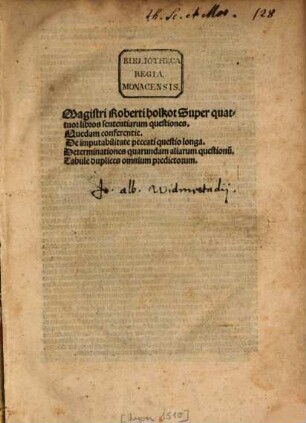 th. Sc. et Mor. 128
BIBLIOTHECA
REGIA
MONACENSIS.
Magistri Roberti holkot Super quat-
tuor libros sententiarum questiones.
Quedam conferentie.
De imputabilitate peccati questio longa.
Determinationes quarundam aliarum questionũ.
Tabule duplices omnium predictorum.
Jo. alb. Widmestadij.